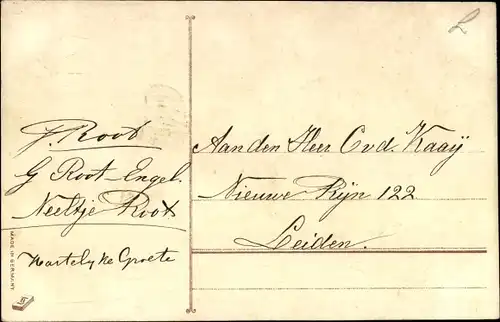 J. Root
G Root-Engel.
Neeltje Root
Hartelyke Groete
Aan den Heer C v d. Kaaÿ
Nieuwe Rijn 122
Leiden.
MADE IN GERMANY